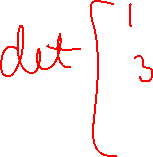 det [ 1
3